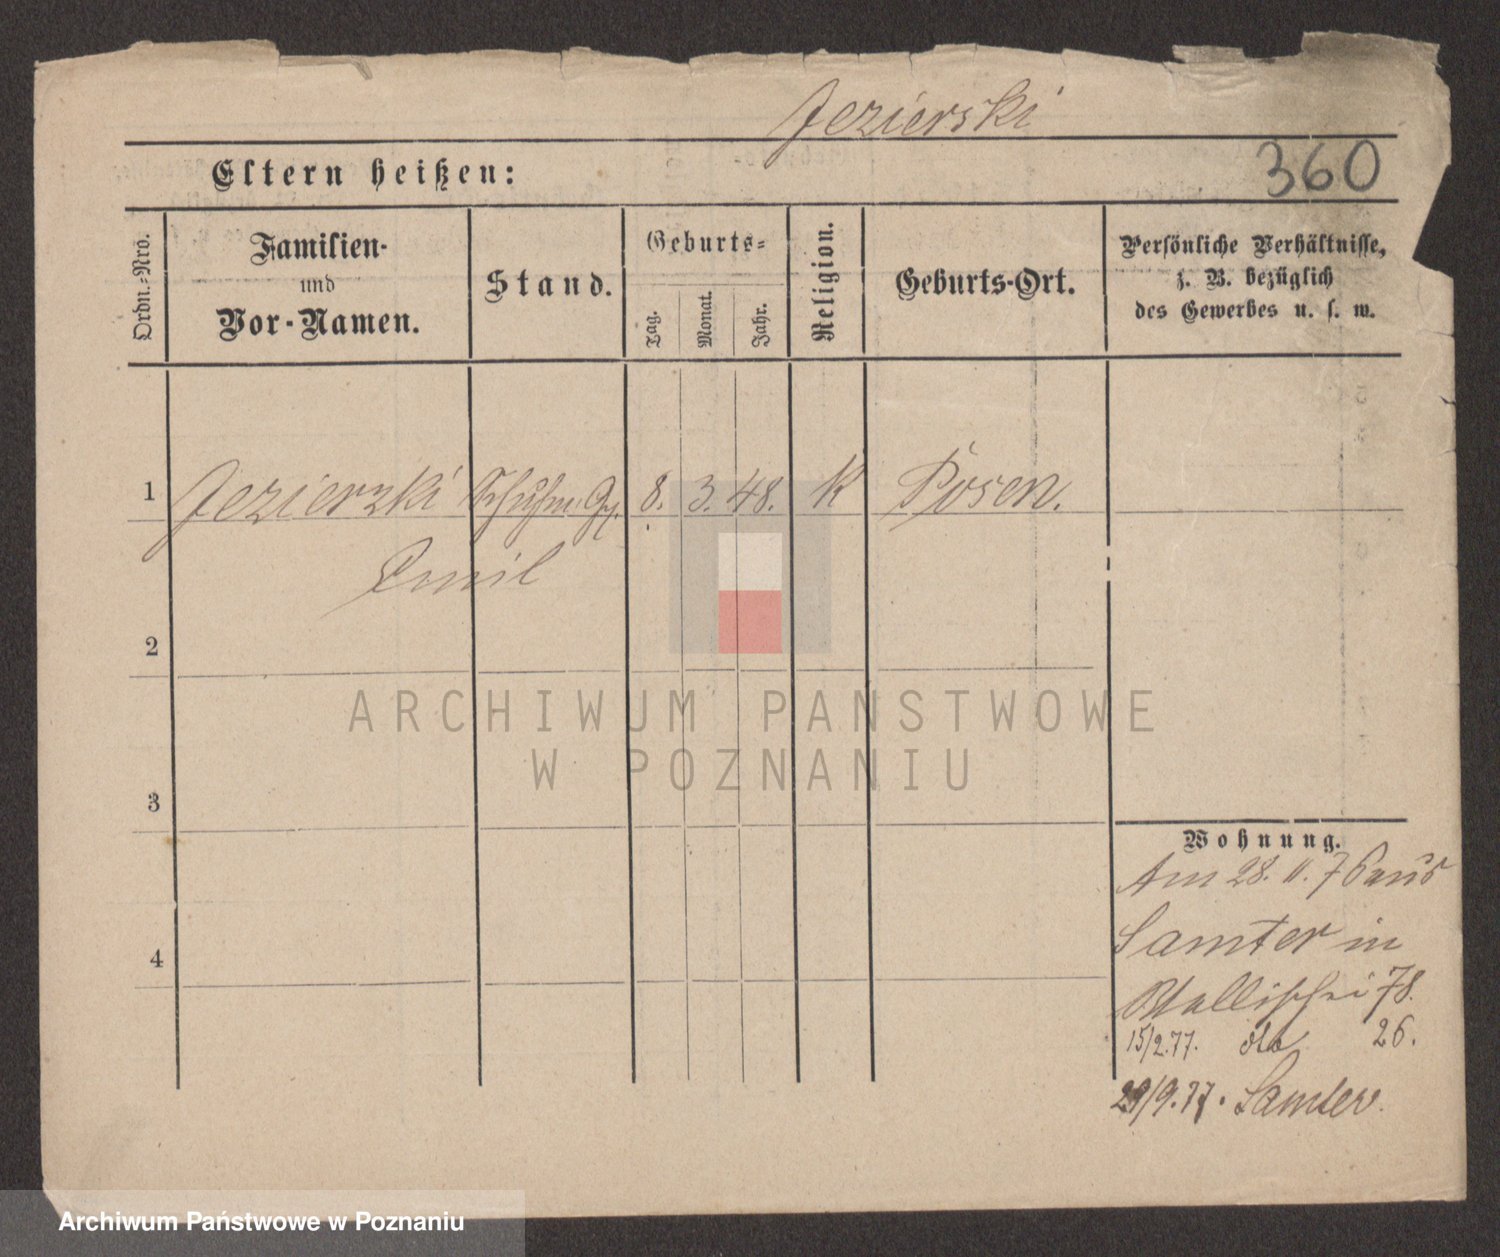 Jezierski
Eltern heißen:
360
Ordn.-Nro.
Familien-
und
Vor-Namen.
Stand.
Geburts-
Tag.
Monat.
Jahr.
Religion.
Geburts-Ort.
Persönliche Verhältnisse,
z. B. bezüglich
des Gewerbes u. s. w.
1
Jezierski Schuhm. 8. 3. 48. K Posen.
Emil
2
3
4
ARCHIWUM PAŃSTWOWE
W POZNANIU
Wohnung.
Am 28. 11. 76 aus
Samter in
Wallischei 78.
15/2.77. do 26.
29/9.77. Samter.
Archiwum Państwowe w Poznaniu